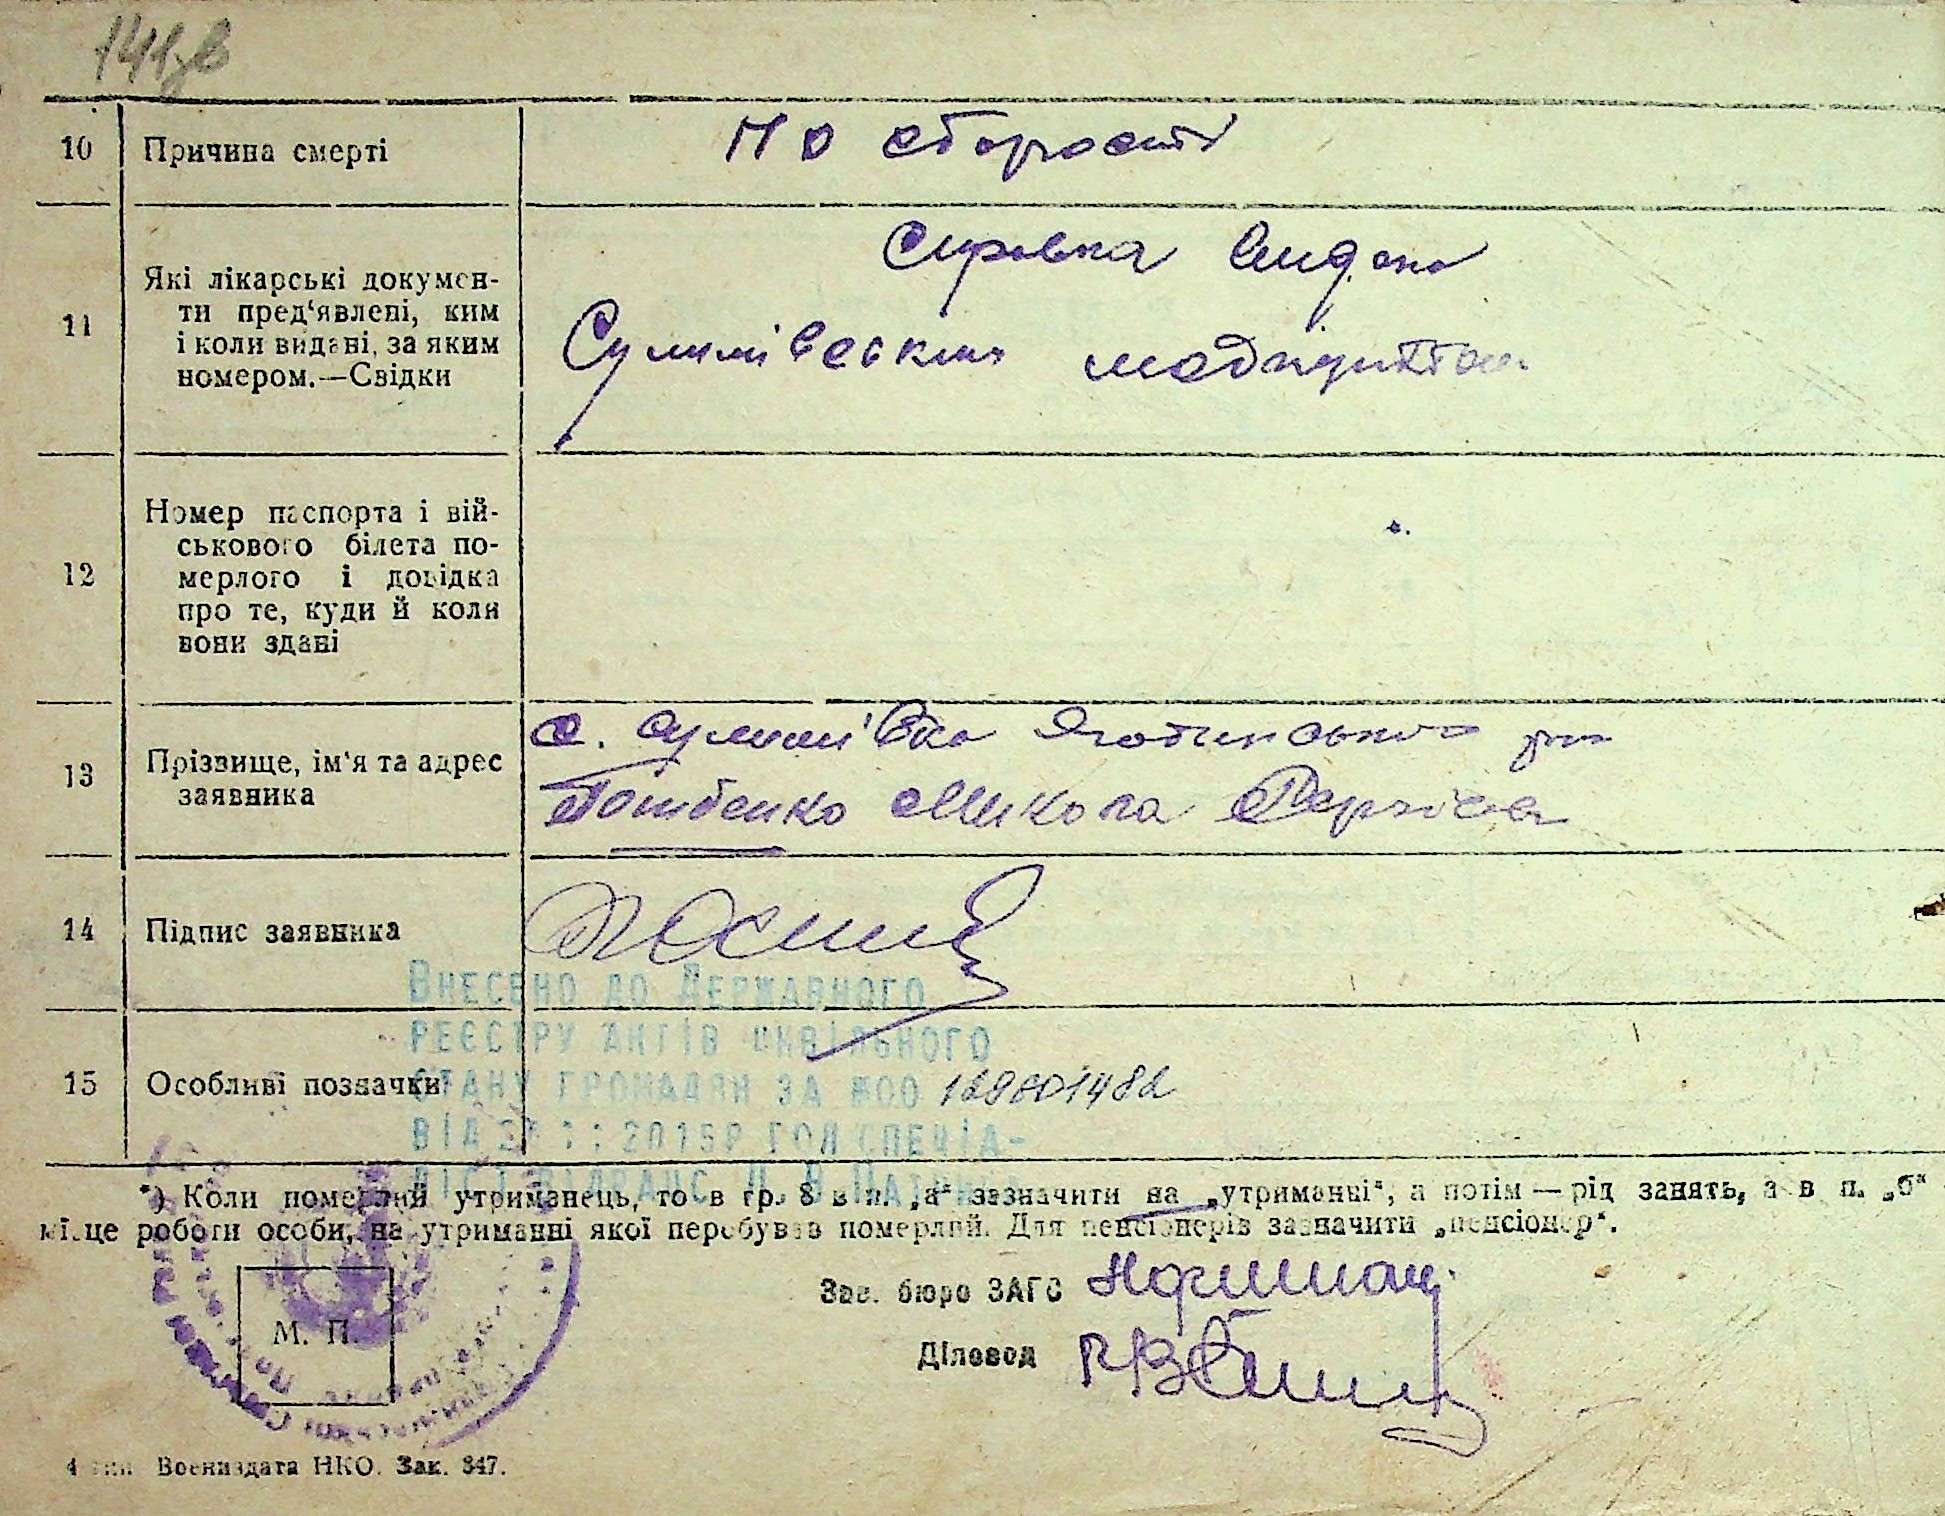 141зв
10 Причина смерті
По старости
11 Які лікарські докумен-
ти пред'явлені, ким
і коли видані, за яким
номером.—Свідки
Справка видана
Сулимівським медпунктом
12 Номер паспорта і вій-
ськового білета по-
мерлого і довідка
про те, куди й коли
вони здані
13 Прізвище, ім'я та адрес
заявника
с. Сулимівка Яготинського р-на
Микола
14 Підпис заявника
Внесено до Державного
реєстру актів цивільного
15 Особливі позначки
стану громадян за №00 129601482
*) Коли померлий утриманець, то в гр. 8 в п. „а" зазначити на „утриманні", а потім — рід занять, а в п. „б"
місце роботи особи, на утриманні якої перебував померлий. Для пенсіонерів зазначити „пенсіонер".
Зав. бюро ЗАГС
Діловод
М. П.
4 тип Воениздата НКО. Зак. 347.